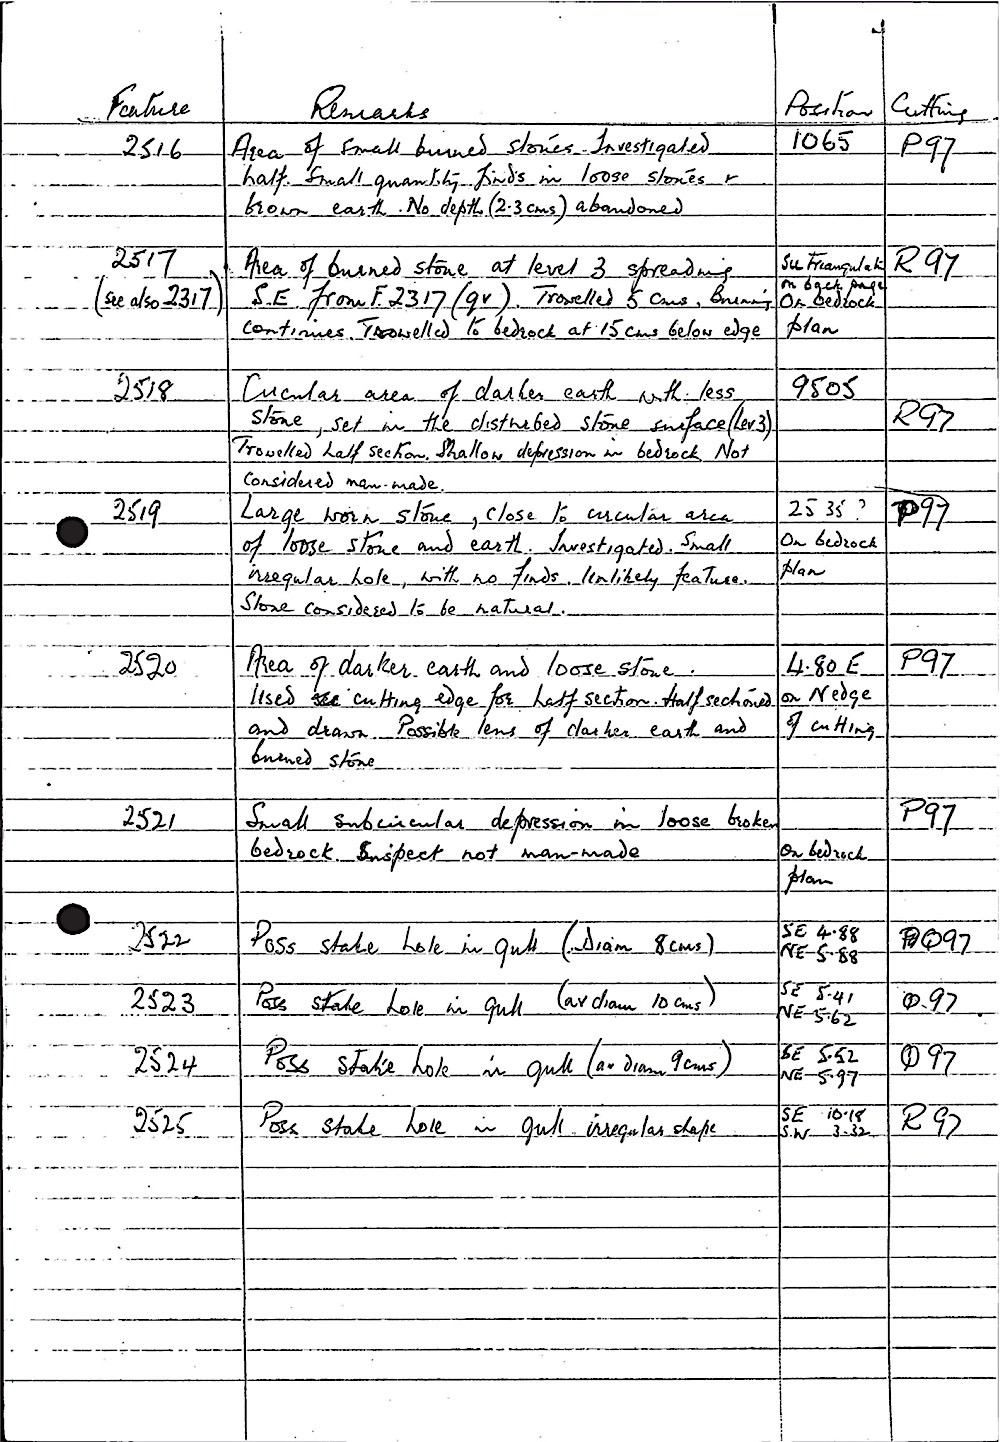 Feature Remarks Position Cutting
2516 Area of small burned stones. Investigated 1065 P97
half. Small quantity finds in loose stones &
brown earth. No depth (2-3 cms) abandoned
2517 Area of burned stone at level 3 spreading See Triangulate R97
on back page
(see also 2317) S.E. from F. 2317 (qv). Trowelled 5 cms, burning On bedrock
continues. Trowelled to bedrock at 15 cms below edge plan
2518 Circular area of darker earth with less 9505
stone, set in the disturbed stone surface (Lev 3) R97
Trowelled half section. Shallow depression in bedrock Not
considered man-made.
2519 Large worn stone, close to circular area 2535? P97
of loose stone and earth. Investigated. Small On bedrock
irregular hole, with no finds. Unlikely feature. plan
Stone considered to be natural.
2520 Area of darker earth and loose stone. 4.80 E P97
Used cutting edge for half section. Half sectioned on N edge
and drawn. Possible lens of darker earth and of cutting
burned stone
2521 Small subcircular depression in loose broken P97
bedrock. Suspect not man-made On bedrock
plan
2522 Poss stake hole in gull (Diam 8 cms) SE 4.88 Q97
NE 5.88
2523 Poss stake hole in gull (av diam 10 cms) SE 5.41 Q.97
NE 5.62
2524 Poss stake hole in gull (av diam 9 cms) SE 5.52 Q97
NE 5.97
2525 Poss stake hole in gull irregular shape SE 10.18 R97
S.W 3.32